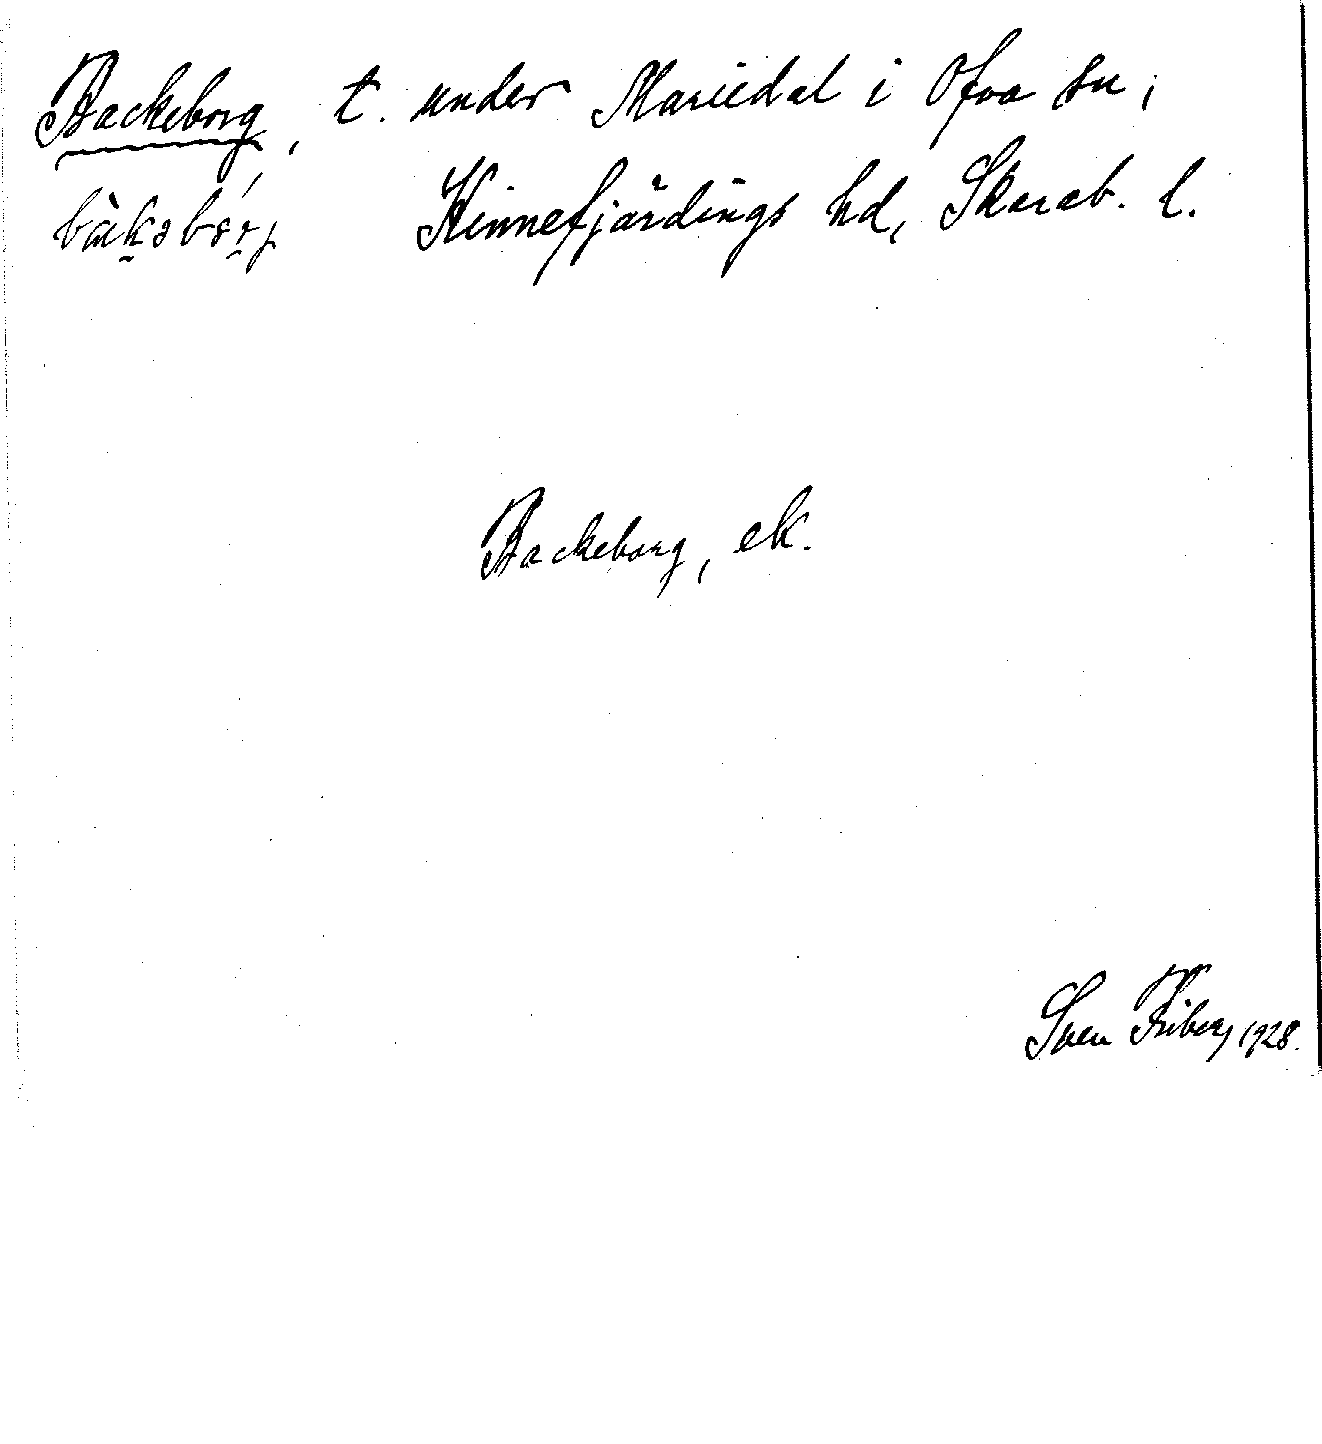 Backeborg, t. under Mariedal i Ofva sn,
bàkəbórj Kinnefjärdings hd, Skarab. l.
Backeborg, ek.
Sven Friberg 1928.